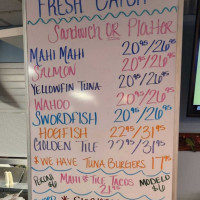 FRESH CATCH
Sandwich OR Platter
MAHI MAHI 20⁹⁵/26⁹⁵
SALMON 20⁹⁵/26⁹⁵
YELLOWFIN TUNA 20⁹⁵/26⁹⁵
WAHOO 20⁹⁵/26⁹⁵
SWORDFISH 20⁹⁵/26⁹⁵
HOGFISH 22⁹⁵/31⁹⁵
GOLDEN TILE 22⁹⁵/31⁹⁵
* WE HAVE TUNA BURGERS 17⁹⁵
MAHI TILE TACOS MODELO
$6